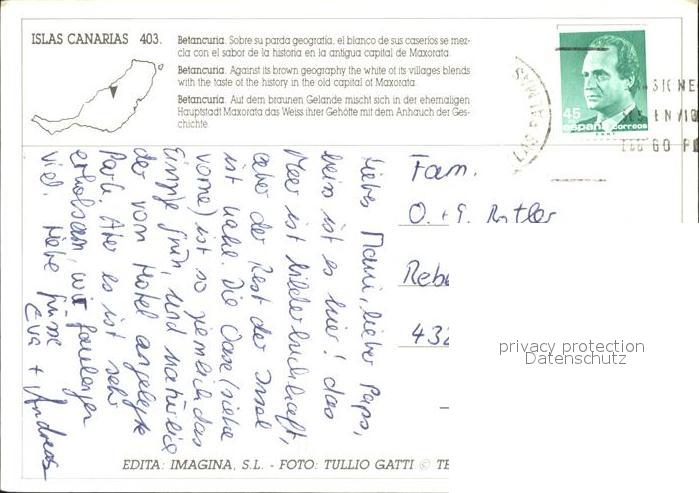 ISLAS CANARIAS 403.
Betancuria. Sobre su parda geografía, el blanco de sus caseríos se mez-
cla con el sabor de la historia en la antigua capital de Maxorata.
Betancuria. Against its brown geography the white of its villages blends
with the taste of the history in the old capital of Maxorata.
Betancuria. Auf dem braunen Gelande mischt sich in der ehemaligen
Hauptstadt Maxorata das Weiss ihrer Gehötte mit dem Anhauch der Ges-
chichte.
45
españa correos
LAS PALMAS
Liebe Mami, lieber Papi,
heiss ist es hier! Das
Meer ist bilderbuchhaft,
aber der Rest der Insel
ist kahl. Die Oase (siehe
vorne) ist so ziemlich das
Einzige Grün, und natürlich
der vom Hotel angelegte
Park. Aber es ist sehr
erholsam, wir faulenzen
viel. Liebe Grüsse
Eva + Andreas
Fam.
O. + G.
Rebe
432
privacy protection
Datenschutz
EDITA: IMAGINA, S.L. - FOTO: TULLIO GATTI © TE